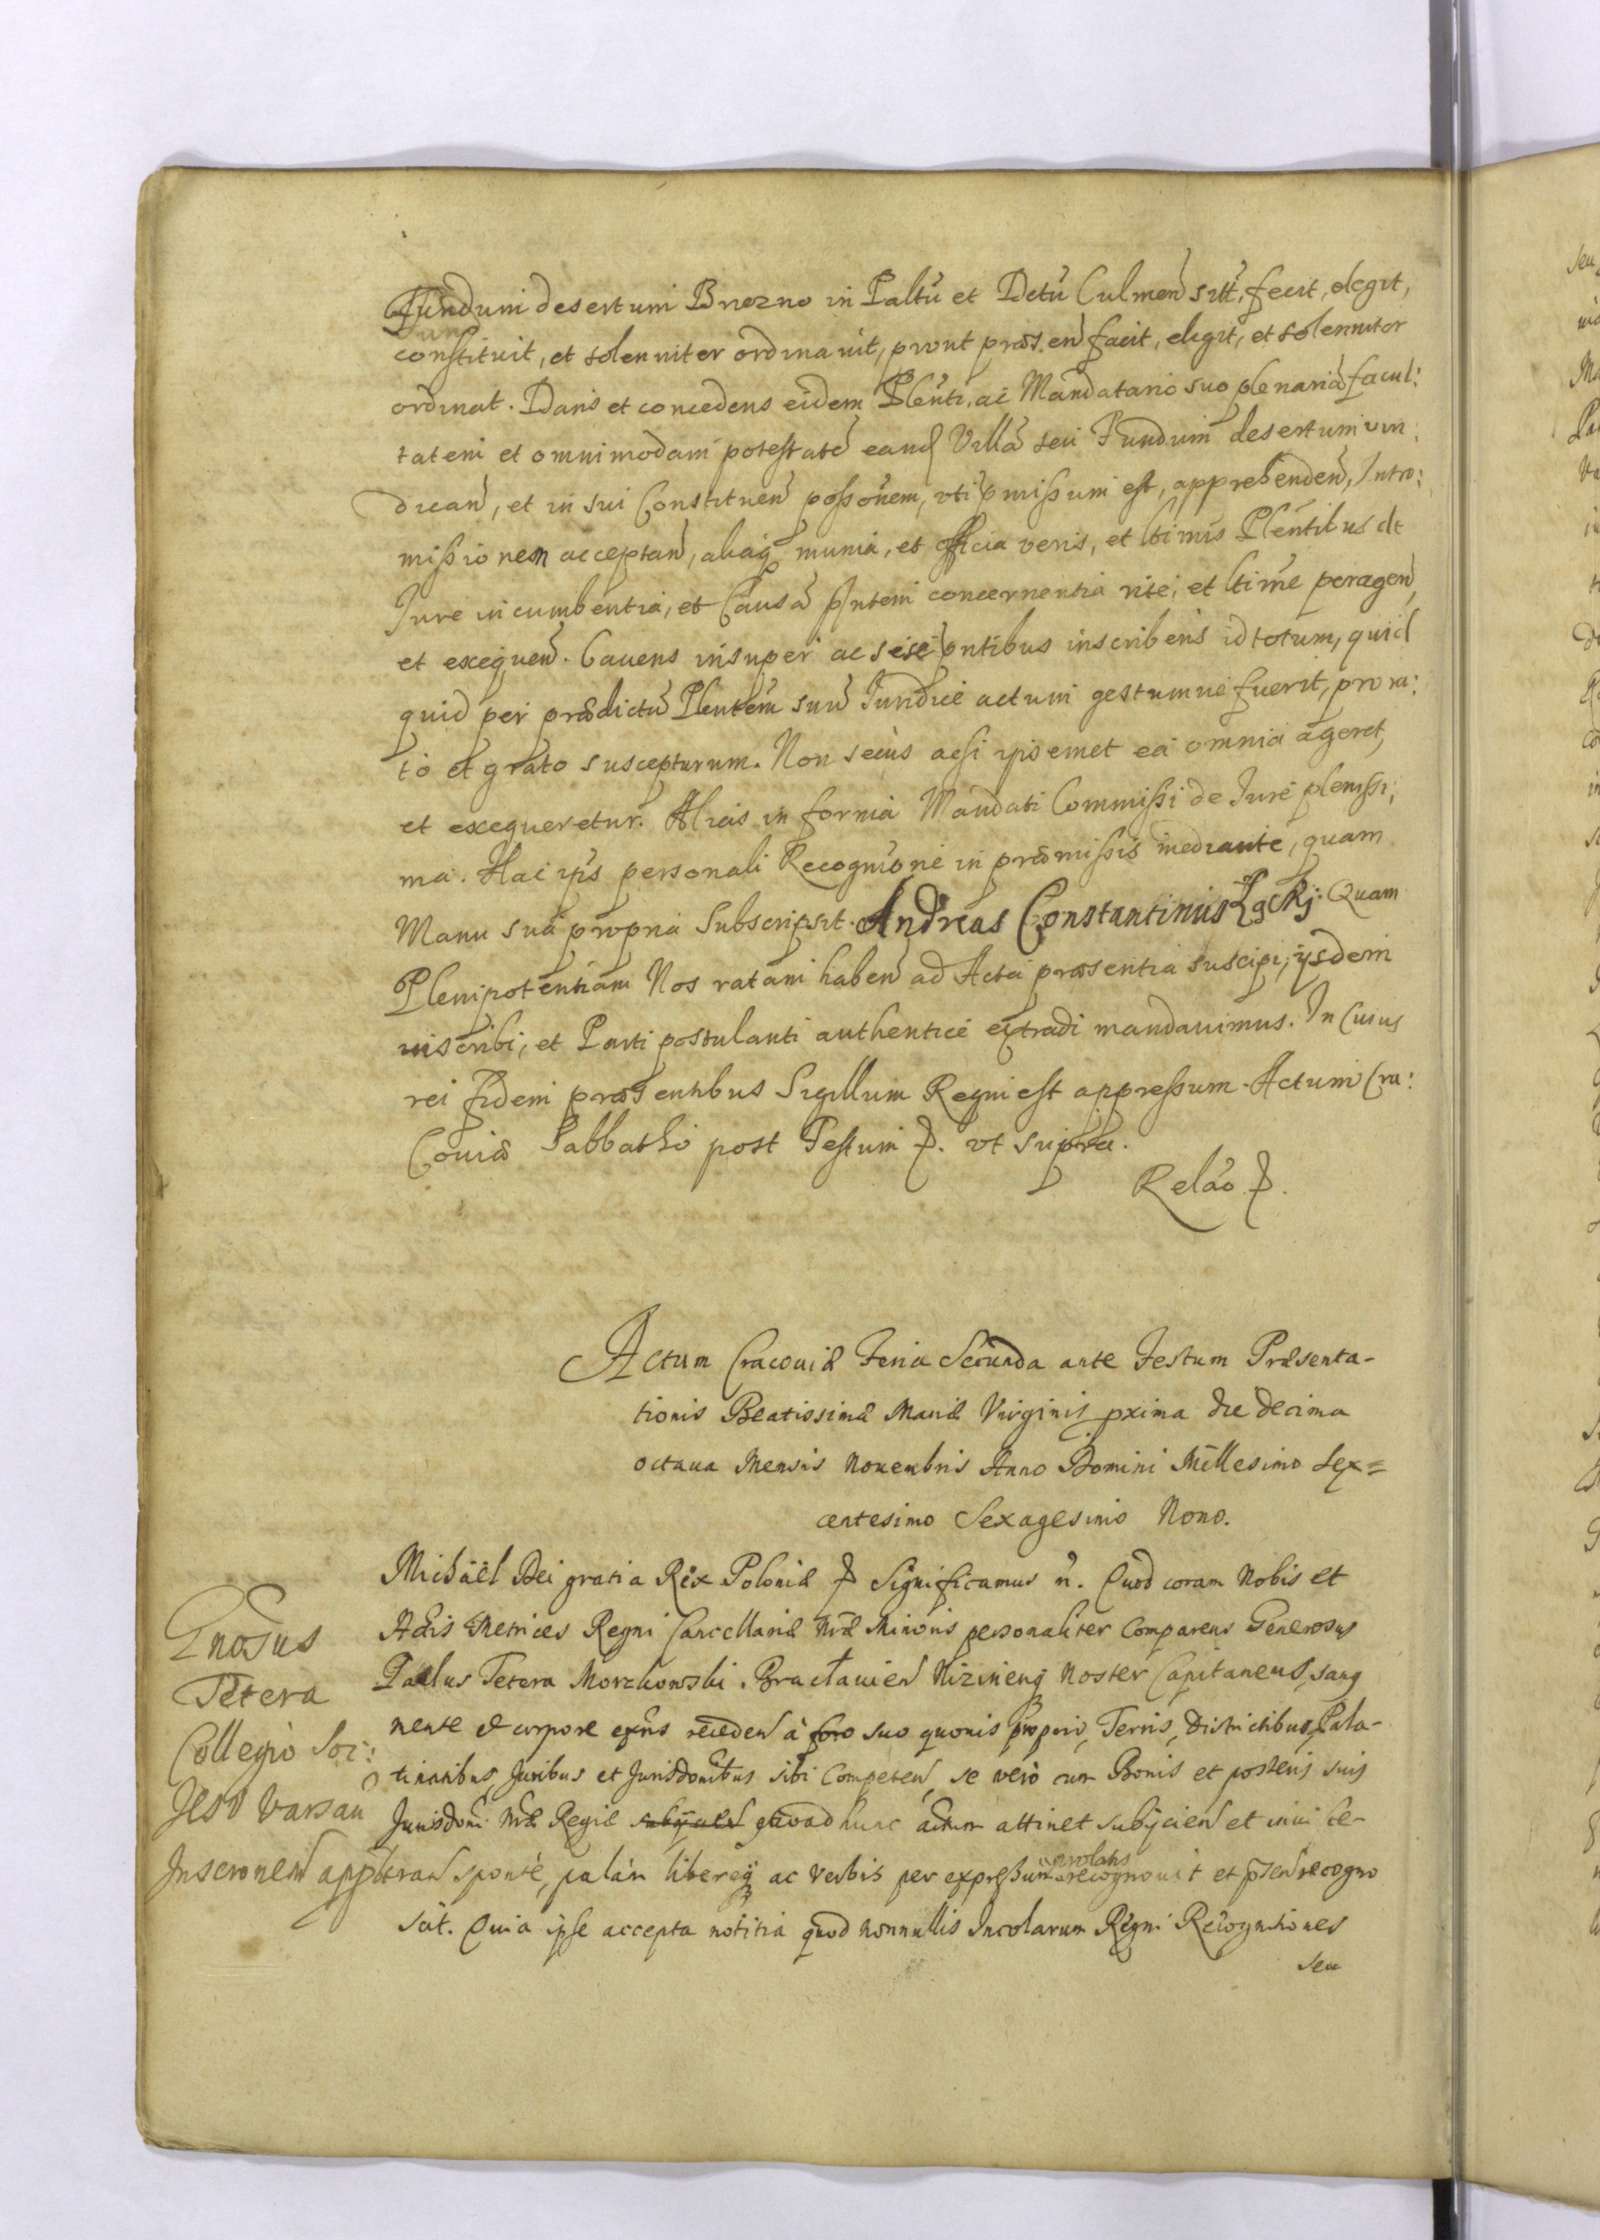 Fundum desertum Brezno in Paltũ et Dctũ Culmeñ sitt, fecit, elegit,
constituit, et solenniter ordinauit, prout præseñ facit, elegit, et solenniter
ordinat. Dans et concedens eidem Plenti, ac Mandatario suo plenariã facul:
tatem et omnimodam potestatẽ eand Villã seu Fundum desertum vin:
dicañ, et in sui Constitueñ possoñem, vti pmissum est, apprehendeñ, Intro:
missionem acceptañ, aliaq munia, et officia veris, et ltimis Plentibus de
Jure incumbentia, et Causã pntem concernentia rite, et ltime perageñ,
et exequeñ. Cauens insuper ac sese pntibus inscribens id totum, quid
quid per prædictũ Plentem suũ Juridice actum gestumue fuerit, pro ra:
to et grato suscepturum. Non secus acsi ipsemet ea omnia ageret,
et exequeretur. Alias in forma Mandati Commissi de Jure plenissi,
ma. Hac ips personali Recognione in præmissis mediante, quam
Manu sua propria Subscripsit. Andreas Constantinus Łącki. Quam
Plenipotentiam Nos ratam habeñ ad Acta præsentia suscipi, ijsdem
inscribi, et Parti postulanti authentice extradi mandauimus. In Cuius
rei fidem præsentibus Sigillum Regni est appressum. Actum Cra:
couiæ Sabbatho post Festum p. vt supra.
Relão p.
Actum Cracouiæ Feria Secunda ante Festum Præsenta-
tionis Beatissimæ Mariæ Virginis pxima die decima
octaua Mensis Nouembris Anno Domini Millesimo Sex=
centesimo Sexagesimo Nono.
Michaël Dei gratia Rex Poloniæ p Significamus ñ. Quod coram Nobis et
Actis Metrices Regni Cancellariæ Nræ Minoris personaliter Comparens Generosus
Paulus Tetera Morzkowski Bractauieñ Nizineñq Noster Capitaneus, sanq
mente et corpore exñs recedeñ à foro suo quouis proprio, Terris, Districtibus, Pala-
tinatibus, Juribus et Jurisdonibus sibi Competeñ, se vero cum Bonis et posteris suis
Jurisdoni Nræ Regiæ subijcieñ quoad hunc actum attinet subijcieñ et inui ce-
sponte, palàm libereq ac verbis per expressum prolatis recognouit et pseñ recogno
scit. Quia ipse accepta notitia quod nonnullis Incolarum Regni Recognitiones
seu
Gnosus
Tetera
Collegio Soc:
Jesv Varsau
Inscronem